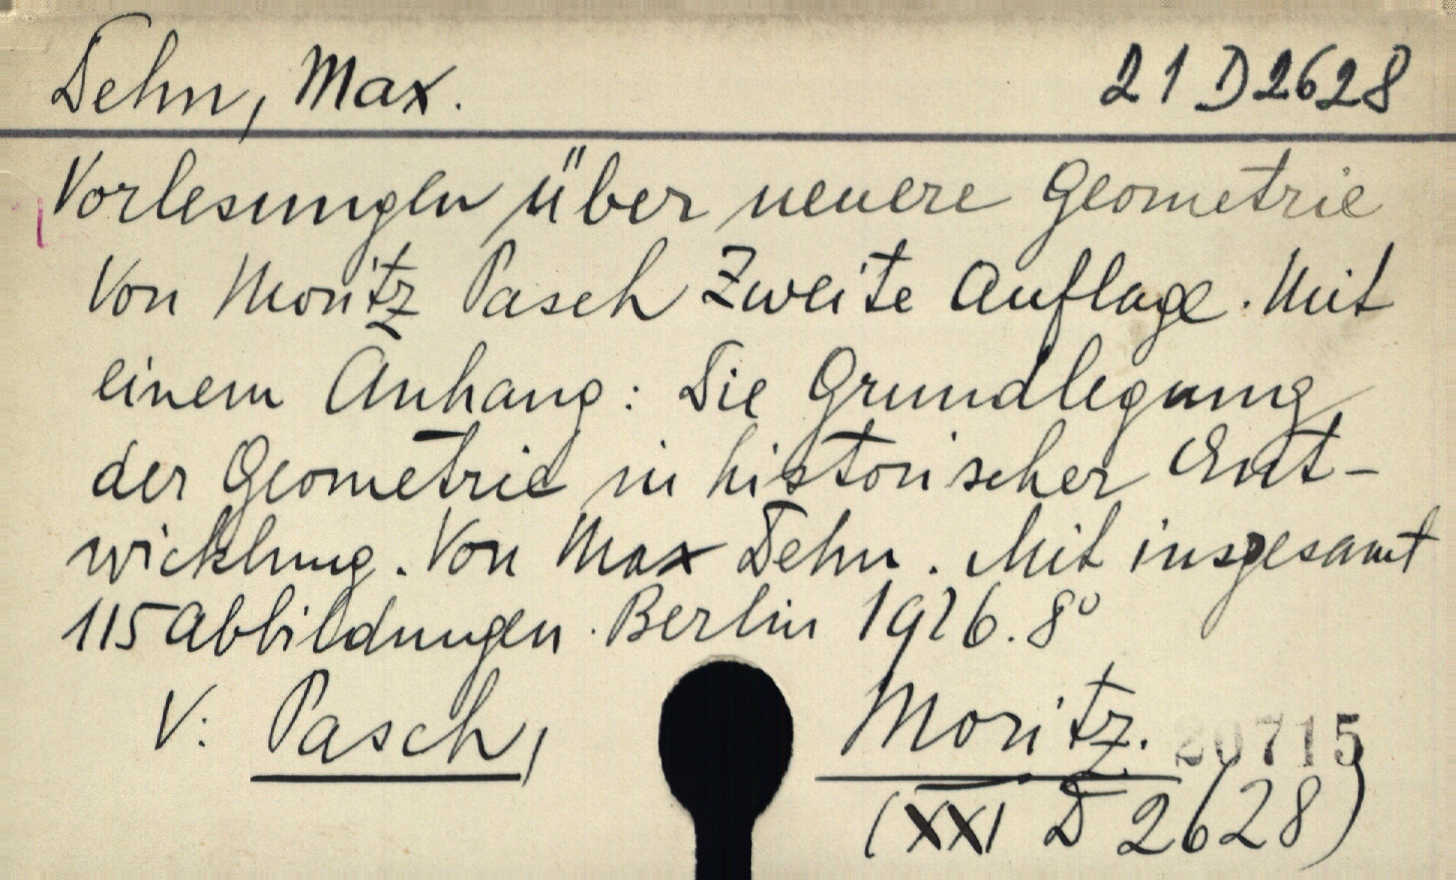 Dehn, Max. 21 D 2628
Vorlesungen über neuere Geometrie
Von Moritz Pasch Zweite Auflage. Mit
einem Anhang: Die Grundlegung
der Geometrie in historischer Ent-
wicklung. Von Max Dehn. Mit insgesamt
115 Abbildungen. Berlin 1926. 8°
V: Pasch, Moritz. 20715
(XXI D 2628)